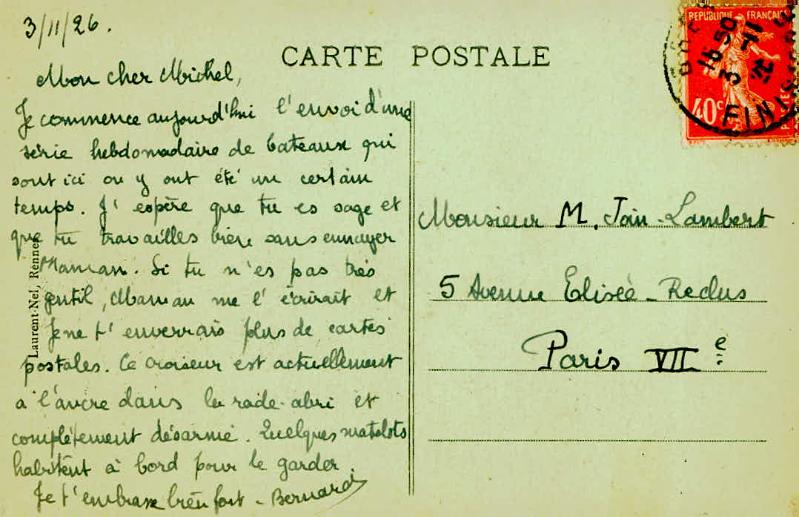 3/11/26.
CARTE POSTALE
Mon cher Michel,
Je commence aujourd'hui l'envoi d'une
série hebdomadaire de bateaux qui
sont ici ou y ont été un certain
temps. J'espère que tu es sage et
que tu travailles bien sans ennuyer
Maman. Si tu n'es pas très
gentil, Maman me l'écrirait et
je ne t'enverrais plus de cartes
postales. Ce croiseur est actuellement
à l'ancre dans la rade-abri et
complètement désarmé. Quelques matelots
habitent à bord pour le garder.
Je t'embrasse bien fort - Bernard
Laurent-Nel, Rennes
REPUBLIQUE FRANÇAISE
40c
POSTES
15 50
3 - 11
FINIS
Monsieur M. Join-Lambert
5 Avenue Elisée-Reclus
Paris VIIe